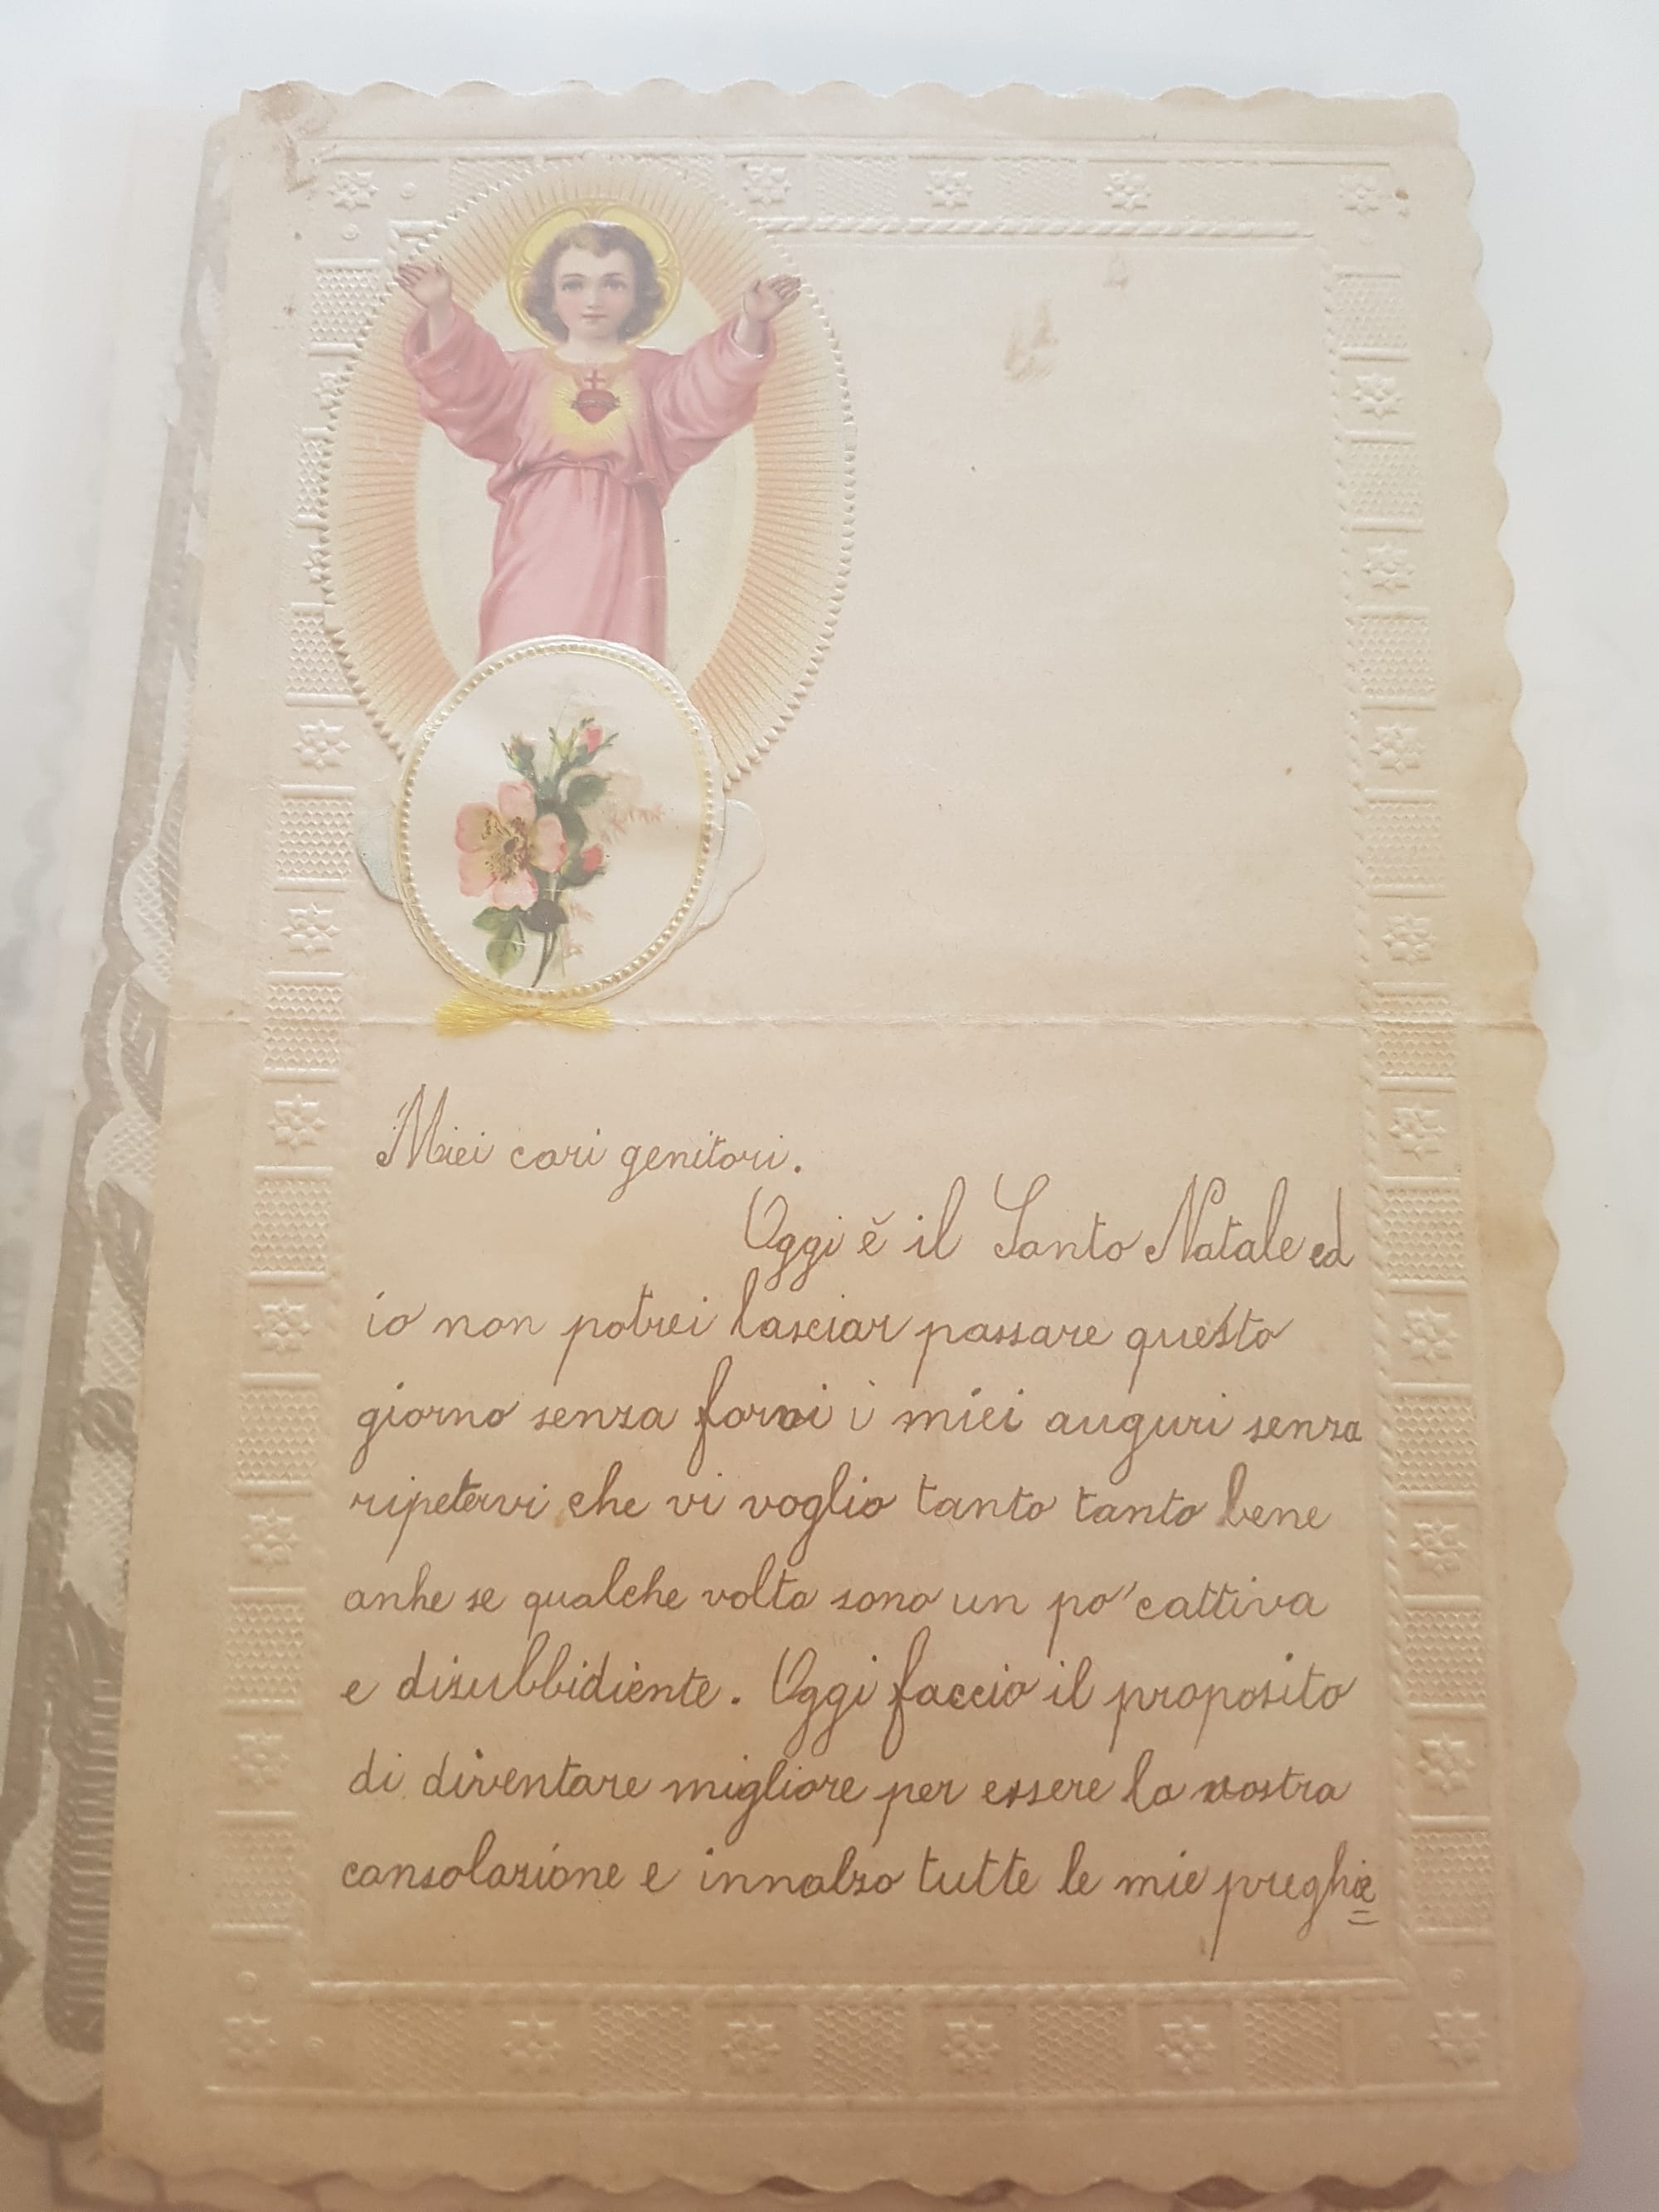 Miei cari genitori.
Oggi è il Santo Natale ed
io non potrei lasciar passare questo
giorno senza farvi i miei auguri senza
ripetervi che vi voglio tanto tanto bene
anhe se qualche volta sono un po' cattiva
e disubbidiente. Oggi faccio il proposito
di diventare migliore per essere la vostra
consolazione e innalzo tutte le mie preghie
=